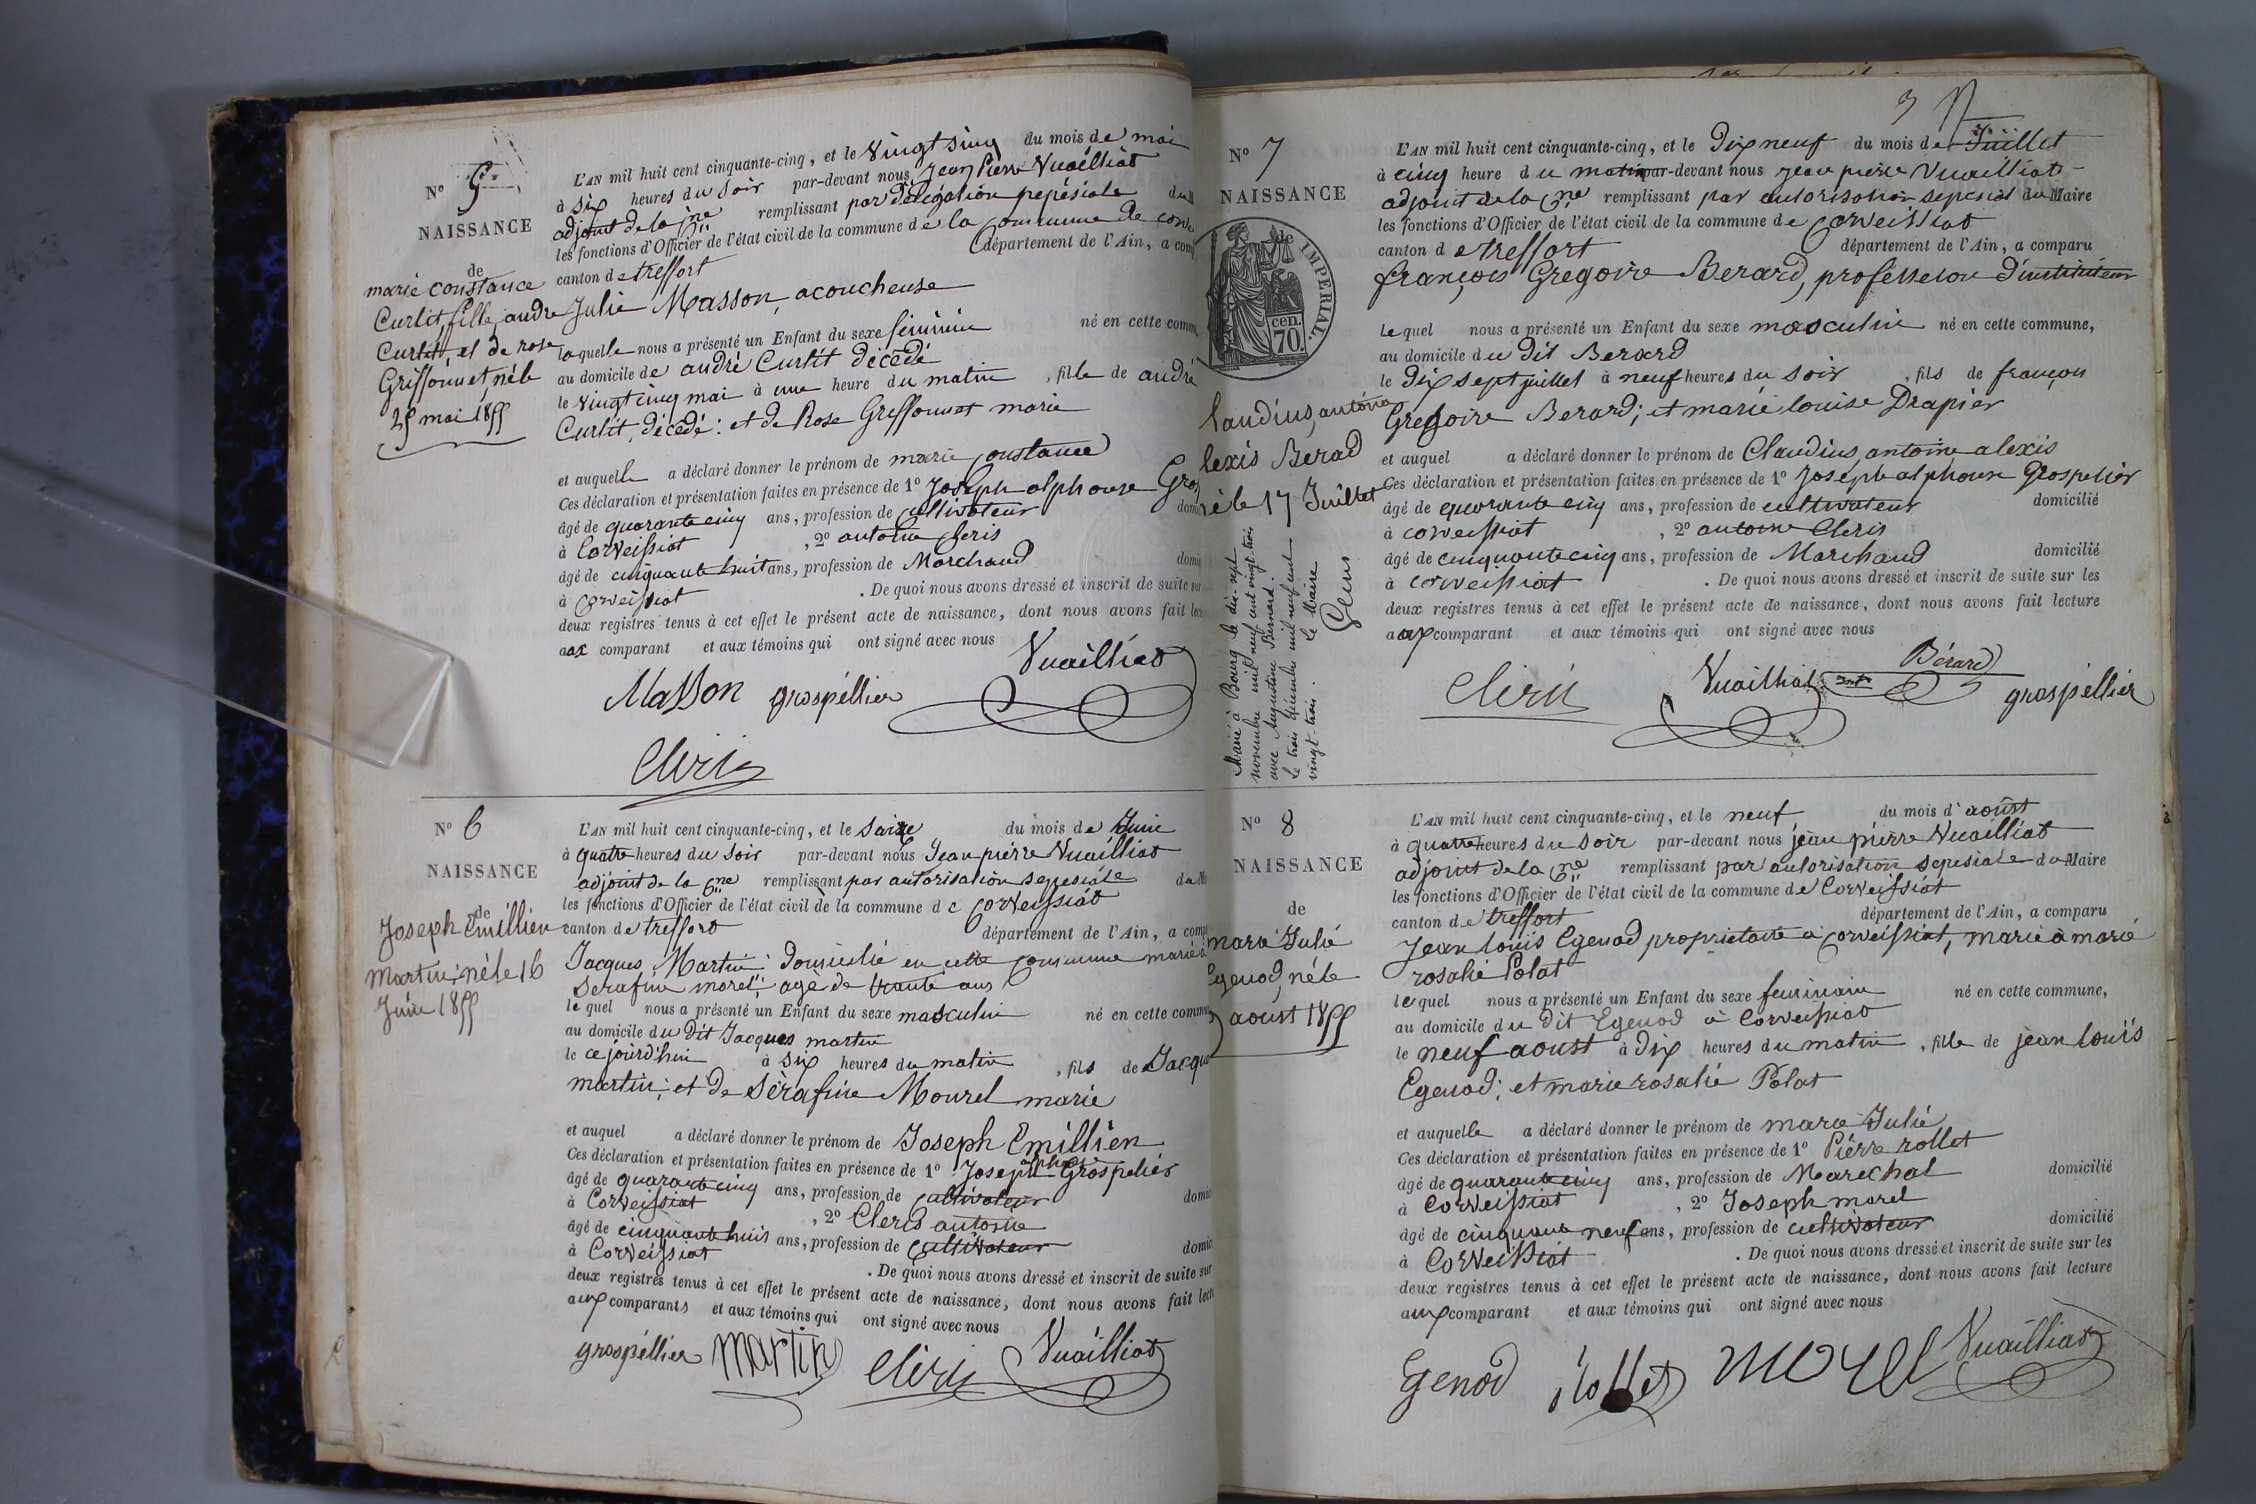 N° 5
NAISSANCE
de
marie constance
Curlit, fille, andre
Curlit, et de rose
Griffonnet, née le
25 mai 1855
L'AN mil huit cent cinquante-cinq, et le vingt sinq du mois de mai
à six heures du soir par-devant nous, jean pierre Vuailliat
adjoint de la Cne remplissant par délégation pepésiale du
les fonctions d'Officier de l'état civil de la commune de la Commune de corve
canton de treffort département de l'Ain, a comp
Julie Masson, acoucheuse
laquelle nous a présenté un Enfant du sexe féminin né en cette comm
au domicile de andré Curlit décédé
le vingt cinq mai à une heure du matin, fille de andré
Curlit, décédé : et de Rose Griffonnet marie
et auquelle a déclaré donner le prénom de marie constance
Ces déclaration et présentation faites en présence de 1° Joseph alphonse Gros
âgé de quarante cinq ans, profession de cultivateur domi
à Corveissiat, 2° antoine Cleris
âgé de cinquante huit ans, profession de Marchand domi
à Corveissiat. De quoi nous avons dressé et inscrit de suite sur
deux registres tenus à cet effet le présent acte de naissance, dont nous avons fait lec
aux comparant et aux témoins qui ont signé avec nous
Masson grospéllier Vuailliat
Cleris
N° 6
NAISSANCE
de
Joseph Emillien
Martin, né le 16
Juin 1855
L'AN mil huit cent cinquante-cinq, et le saize du mois de Juin
à quatre heures du soir par-devant nous Jean pierre Vuailliat
adjoint de la Cne remplissant par autorisation sepesiale du M
les fonctions d'Officier de l'état civil de la commune de Corveissiat
canton de treffort département de l'Ain, a comp
Jacques Martin: domicilié en cette commune marié à
Serafine morel; agé de trante ans
lequel nous a présenté un Enfant du sexe masculin né en cette commu
au domicile du dit Jacques martin
le cejourd'hui à six heures du matin, fils de Jacque
martin; et de Sèrafine Mourel marié
et auquel a déclaré donner le prénom de Joseph Emillien
Ces déclaration et présentation faites en présence de 1° Joseph alphonse Grospelier
âgé de quarante cinq ans, profession de cultivateur domic
à Corveissiat, 2° Cleris antoine
âgé de cinquante huit ans, profession de Cultivateur domic
à Corveissiat. De quoi nous avons dressé et inscrit de suite sur
deux registres tenus à cet effet le présent acte de naissance, dont nous avons fait lect
aux comparants et aux témoins qui ont signé avec nous
grospéllier martin Cleris Vuailliat
N° 7
NAISSANCE
de
IMPERIAL.
cen.
70.
laudius, antoine
lexis Berad
né le 17 Juillet
Marié à Bourg le dix-sept
novembre mil neuf cent vingt trois
avec Augustine Bernard.
Le trois décembre mil neuf cent
vingt-trois. Le Maire
L'AN mil huit cent cinquante-cinq, et le Dix neuf du mois de Juillet
à cinq heure du matin par-devant nous jean pierre Vuailliat
adjoint de la Cne remplissant par autorisation sepesial du Maire
les fonctions d'Officier de l'état civil de la commune de Corveissiat
canton de treffort département de l'Ain, a comparu
françois Gregoire Berard, professeion d'instituteur
lequel nous a présenté un Enfant du sexe masculin né en cette commune,
au domicile du dit Berard
le Dix sept juillet à neuf heures du soir, fils de françois
Gregoire Berard; et marié louise Drapier
et auquel a déclaré donner le prénom de Claudius, antoine alexis
Ces déclaration et présentation faites en présence de 1° Joseph alphonse Grospelier
âgé de quarante cinq ans, profession de cultivateur domicilié
à corveissiat, 2° antoine Cleris
âgé de cinquante cinq ans, profession de Marchand domicilié
à corveissiat. De quoi nous avons dressé et inscrit de suite sur les
deux registres tenus à cet effet le présent acte de naissance, dont nous avons fait lecture
aux comparant et aux témoins qui ont signé avec nous
Cleris Vuailliat Bérard grospéllier
N° 8
NAISSANCE
de
marie Julie
Egenod, née le
aoust 1855
L'AN mil huit cent cinquante-cinq, et le neuf du mois d'aoust
à quatre heures du soir par-devant nous jean pierre Vuailliat
adjoint de la Cne remplissant par autorisation sepesiale du Maire
les fonctions d'Officier de l'état civil de la commune de Corveissiat
canton de treffort département de l'Ain, a comparu
Jean louis Egenod proprietaire a corveissiat, marié à marie
rosalie Polat
lequel nous a présenté un Enfant du sexe feminain né en cette commune,
au domicile du dit Egenod à Corveissiat
le neuf aoust à dix heures du matin, fille de jean louis
Egenod; et marie rosalie Polat
et auquelle a déclaré donner le prénom de marie Julie
Ces déclaration et présentation faites en présence de 1° Pierre rollet
âgé de quarante cinq ans, profession de Marechal domicilié
à Corveissiat, 2° Joseph morel
âgé de cinquante neuf ans, profession de cultivateur domicilié
à Corveissiat. De quoi nous avons dressé et inscrit de suite sur les
deux registres tenus à cet effet le présent acte de naissance, dont nous avons fait lecture
aux comparant et aux témoins qui ont signé avec nous
Egenod rollet morel Vuailliat